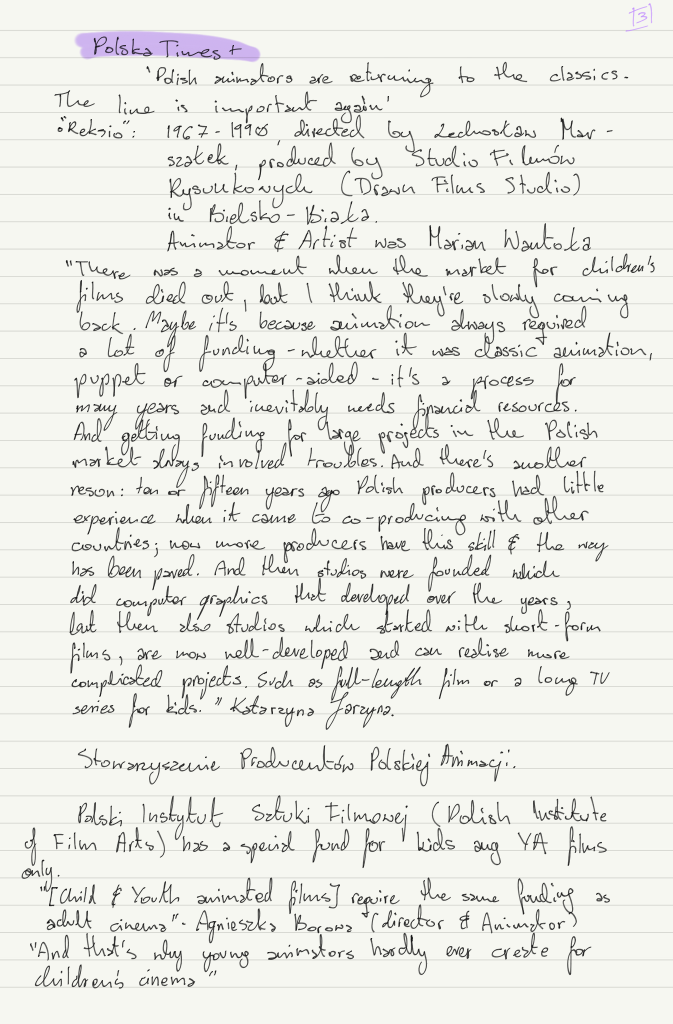 [3]
Polska Times +
'Polish animators are returning to the classics.
The line is important again'
"Reksio": 1967-1990, directed by Lechosław Mar-
szałek, produced by Studio Filmów
Rysunkowych (Drawn Films Studio)
in Bielsko-Biała.
Animator & Artist was Marian Wantoła
"There was a moment when the market for children's
films died out, but I think they're slowly coming
back. Maybe it's because animation always required
a lot of funding - whether it was classic animation,
puppet or computer-aided - it's a process for
many years and inevitably needs financial resources.
And getting funding for large projects in the Polish
market always involved troubles. And there's another
reson: ten or fifteen years ago Polish producers had little
experience when it came to co-producing with other
countries; now more producers have this skill & the way
has been paved. And then studios were founded which
did computer graphics that developed over the years,
but then also studios which started with short-form
films, are now well-developed and can realise more
complicated projects. Such as full-length film or a long TV
series for kids." Katarzyna Jarzyna.
Stowarzyszenie Producentów Polskiej Animacji.
Polski Instytut Sztuki Filmowej (Polish Institute
of Film Arts) has a special fund for kids ang YA films
only.
"[Child & Youth animated films] require the same funding as
adult cinema" - Agnieszka Borowa (director & Animator)
"And that's why young animators hardly ever create for
children's cinema"